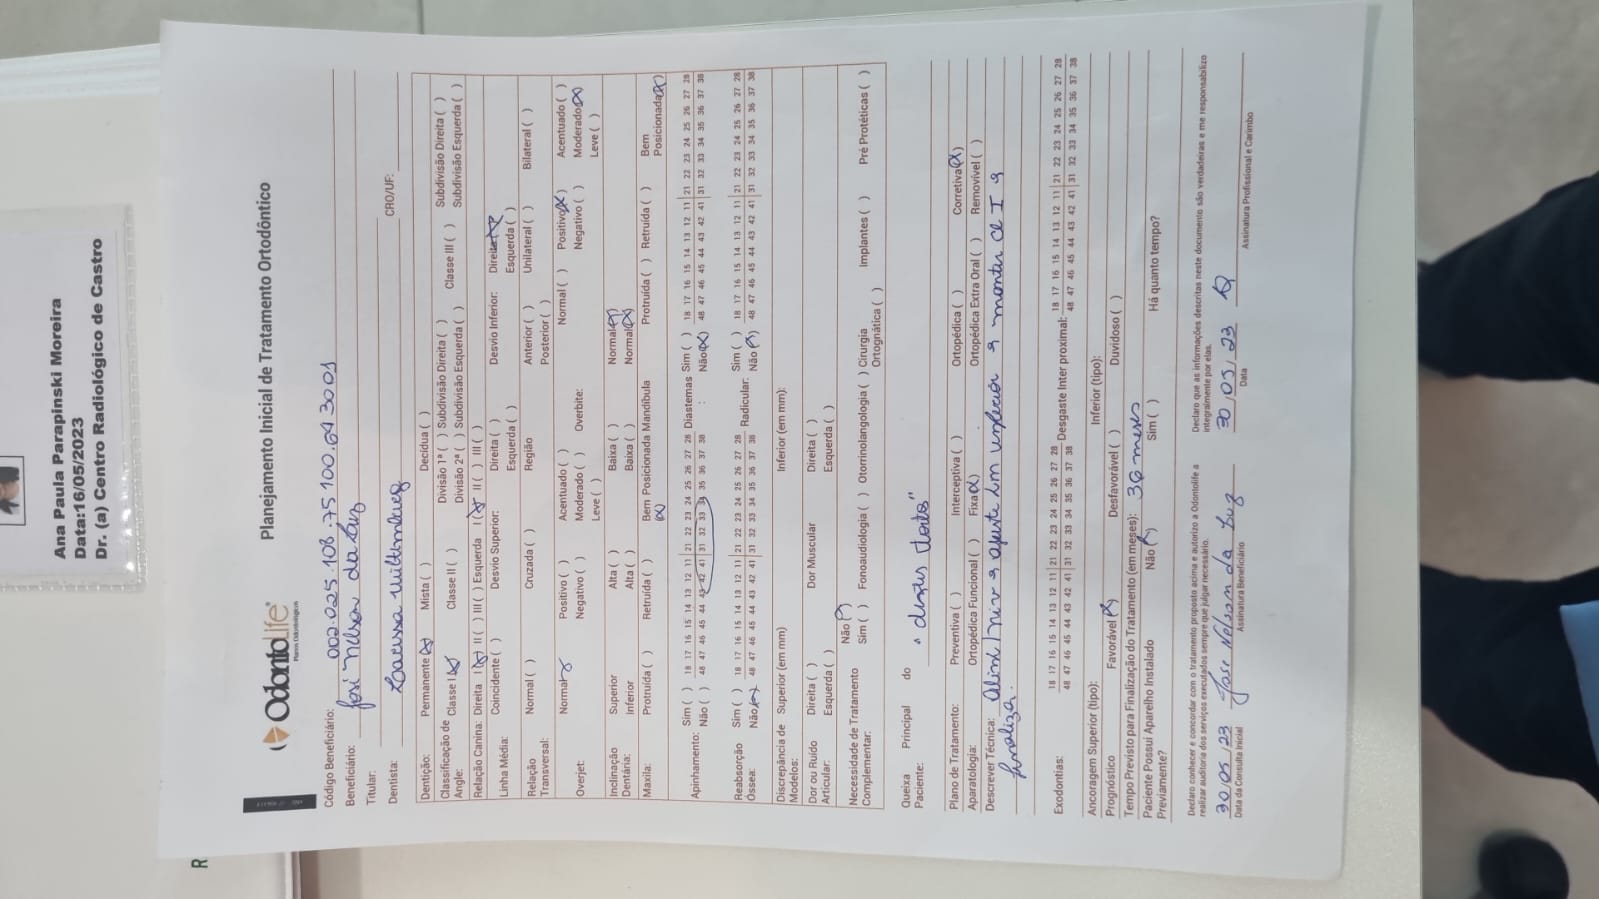 Ana Paula Parapinski Moreira
Data:16/05/2023
Dr. (a) Centro Radiológico de Castro
R
OdontoLife
Planos Odontológicos
Planejamento Inicial de Tratamento Ortodôntico
Código Beneficiário: 002.025.108.75100.64 3001
Beneficiário: José Nelson da Luz
Titular:
Dentista: CRO/UF:
Dentição: Permanente (X) Mista ( ) Decídua ( )
Classificação de Angle: Classe I (X) Classe II ( ) Divisão 1ª ( ) Subdivisão Direita ( ) Classe III ( ) Subdivisão Direita ( )
Divisão 2ª ( ) Subdivisão Esquerda ( ) Subdivisão Esquerda ( )
Relação Canina: Direita I (X) II ( ) III ( ) Esquerda I (X) II ( ) III ( )
Linha Média: Coincidente ( ) Desvio Superior: Direita ( ) Desvio Inferior: Direita (X)
Esquerda ( ) Esquerda ( )
Relação Transversal: Normal ( ) Cruzada ( ) Região Anterior ( ) Unilateral ( ) Bilateral ( )
Posterior ( )
Overjet: Normal (X) Positivo ( ) Acentuado ( ) Overbite: Normal ( ) Positivo (X) Acentuado ( )
Negativo ( ) Moderado ( ) Negativo ( ) Moderado (X)
Leve ( ) Leve ( )
Inclinação Dentária: Superior Alta ( ) Baixa ( ) Normal (X)
Inferior Alta ( ) Baixa ( ) Normal (X)
Maxila: Protruída ( ) Retruída ( ) Bem Posicionada (X) Mandíbula Protruída ( ) Retruída ( ) Bem Posicionada (X)
Apinhamento: Sim ( ) 18 17 16 15 14 13 12 11 21 22 23 24 25 26 27 28 Diastemas Sim ( ) 18 17 16 15 14 13 12 11 21 22 23 24 25 26 27 28
Não ( ) 48 47 46 45 44 43 42 41 31 32 33 34 35 36 37 38 : Não (X) 48 47 46 45 44 43 42 41 31 32 33 34 35 36 37 38
Reabsorção Óssea: Sim ( ) 18 17 16 15 14 13 12 11 21 22 23 24 25 26 27 28 Radicular: Sim ( ) 18 17 16 15 14 13 12 11 21 22 23 24 25 26 27 28
Não (X) 48 47 46 45 44 43 42 41 31 32 33 34 35 36 37 38 Não (X) 48 47 46 45 44 43 42 41 31 32 33 34 35 36 37 38
Discrepância de Modelos: Superior (em mm) Inferior (em mm):
Dor ou Ruído Articular: Direita ( ) Dor Muscular Direita ( )
Esquerda ( ) Esquerda ( )
Necessidade de Tratamento Complementar: Não (X)
Sim ( ) Fonoaudiologia ( ) Otorrinolangologia ( ) Cirurgia Ortognática ( ) Implantes ( ) Pré Protéticas ( )
Queixa Principal do Paciente: "dentes tortos"
Plano de Tratamento: Preventiva ( ) Interceptiva ( ) Ortopédica ( ) Corretiva (X)
Aparatologia: Ortopédica Funcional ( ) Fixa (X) Ortopédica Extra Oral ( ) Removível ( )
Descrever Técnica: e manter cl I e
finalizar.
Exodontias: 18 17 16 15 14 13 12 11 21 22 23 24 25 26 27 28 Desgaste Inter proximal: 18 17 16 15 14 13 12 11 21 22 23 24 25 26 27 28
48 47 46 45 44 43 42 41 31 32 33 34 35 36 37 38 48 47 46 45 44 43 42 41 31 32 33 34 35 36 37 38
Ancoragem Superior (tipo): Inferior (tipo):
Prognóstico Favorável (X) Desfavorável ( ) Duvidoso ( )
Tempo Previsto para Finalização do Tratamento (em meses): 36 meses
Paciente Possui Aparelho Instalado Previamente? Não (X) Sim ( ) Há quanto tempo?
Declaro conhecer e concordar com o tratamento proposto acima e autorizo a Odontolife a
realizar auditoria dos serviços executados sempre que julgar necessário.
Declaro que as informações descritas neste documento são verdadeiras e me responsabilizo
integralmente por elas.
30 05 23 José Nelson da Luz 30/05/23
Data da Consulta Inicial Assinatura Beneficiário Data Assinatura Profissional e Carimbo